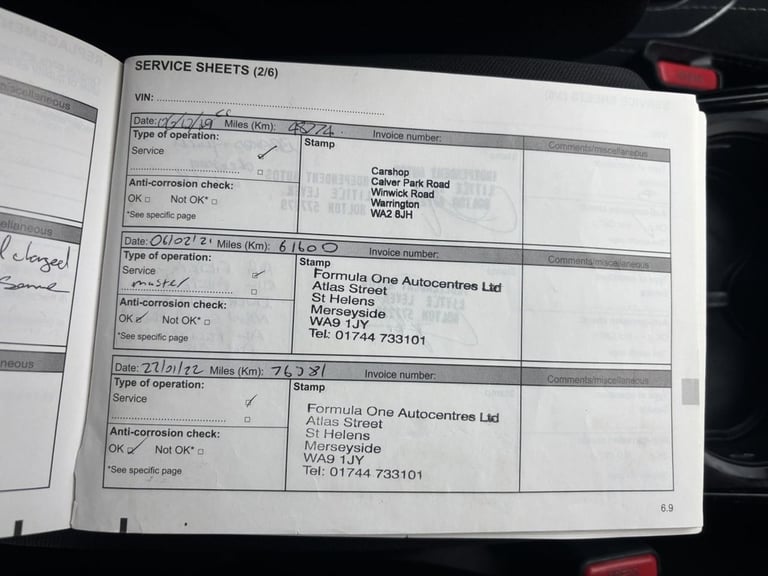 SERVICE SHEETS (2/6)
VIN:
Date: Miles (Km): 48774 Invoice number:
Comments/miscellaneous
Type of operation:
Service
Anti-corrosion check:
OK Not OK*
*See specific page
Stamp
Carshop
Calver Park Road
Winwick Road
Warrington
WA2 8JH
Date: 06/02/21 Miles (Km): 61600 Invoice number:
Comments/miscellaneous
Type of operation:
Service
master
Anti-corrosion check:
OK Not OK*
*See specific page
Stamp
Formula One Autocentres Ltd
Atlas Street
St Helens
Merseyside
WA9 1JY
Tel: 01744 733101
Date: 22/01/22 Miles (Km): Invoice number:
Comments/miscellaneous
Type of operation:
Service
Anti-corrosion check:
OK Not OK*
*See specific page
Stamp
Formula One Autocentres Ltd
Atlas Street
St Helens
Merseyside
WA9 1JY
Tel: 01744 733101
6.9